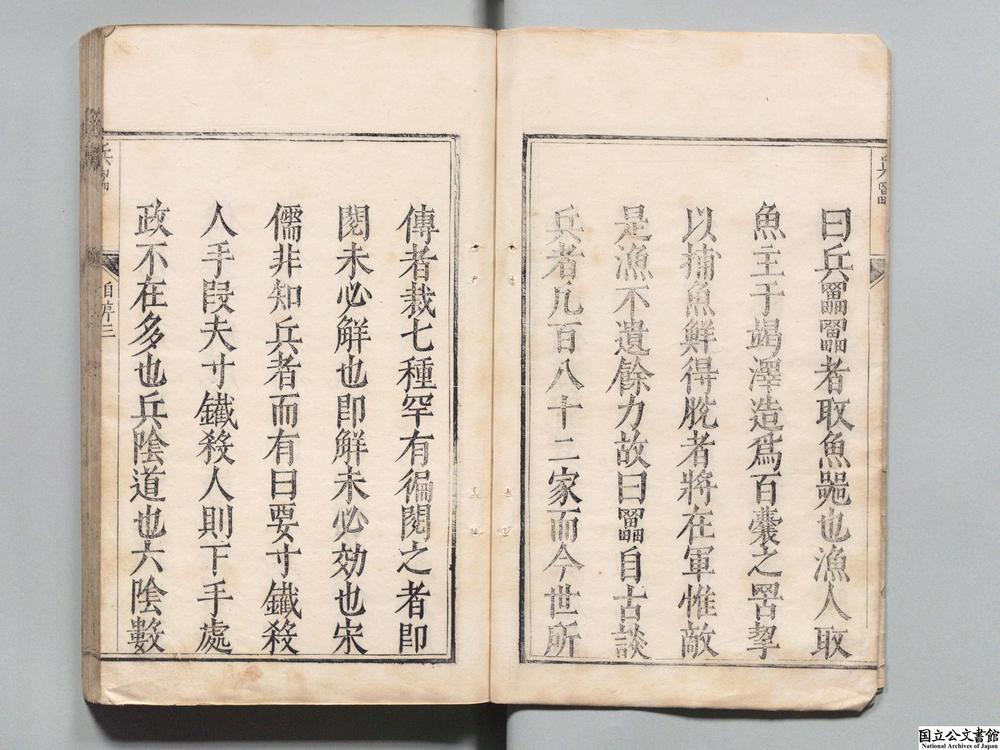 曰兵罶罶者取魚噐也漁人取
魚主于竭澤造爲百囊之罟挈
以捕魚鮮得脫者將在軍惟敵
是漁不遺餘力故曰罶自古談
兵者凡百八十二家而今世所
傳者裁七種罕有徧閱之者即
閱未必解也即解未必効也宋
儒非知兵者而有曰要寸鐵殺
人手段夫寸鐵殺人則下手處
政不在多也兵陰道也六陰數
兵罶
自序三
国立公文書館
National Archives of Japan